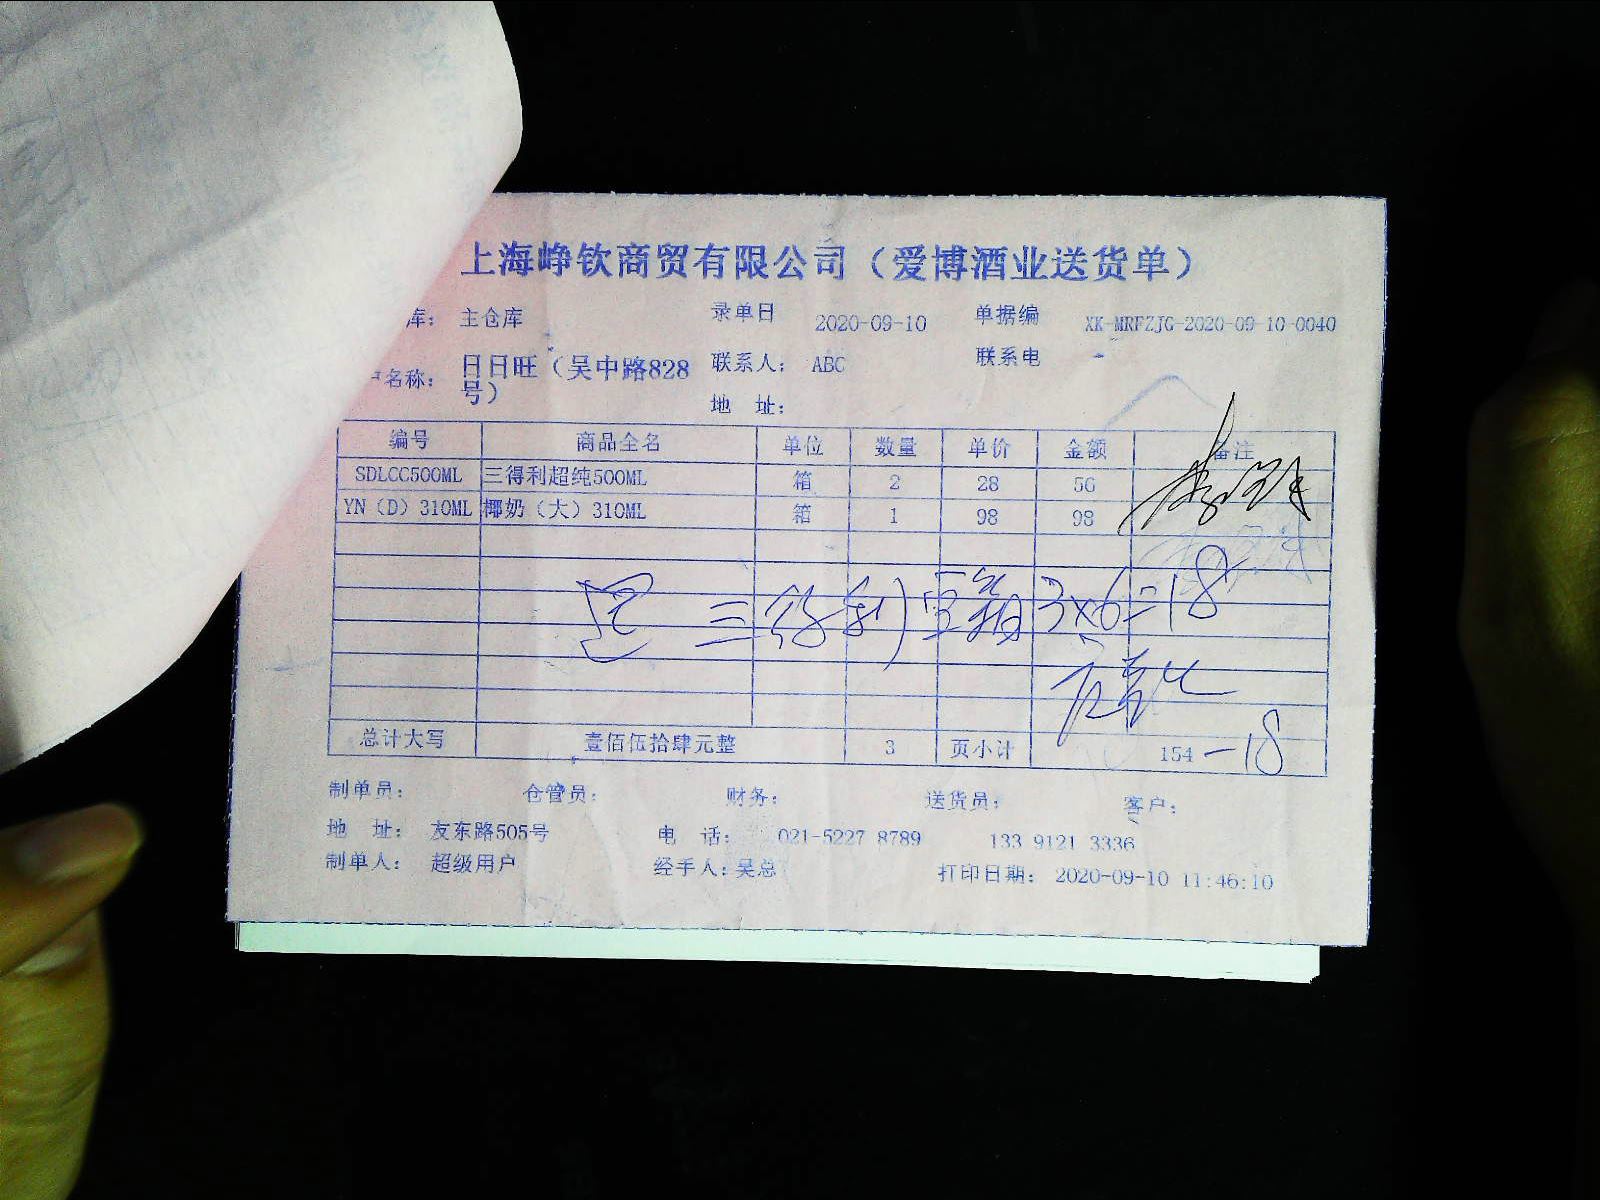 上海峥钦商贸有限公司（爱博酒业送货单）
库： 主仓库 录单日 2020-09-10 单据编 XK-MRFZJG-2020-09-10-0040
户名称： 日日旺（吴中路828号） 联系人： ABC 联系电 -
地 址：
编号 商品全名 单位 数量 单价 金额 备注
SDLCC500ML 三得利超纯500ML 箱 2 28 56
YN（D）310ML 椰奶（大）310ML 箱 1 98 98
退 三得利 空箱 3×6=18
-18
总计大写 壹佰伍拾肆元整 3 页小计 154
制单员： 仓管员： 财务： 送货员： 客户：
地 址： 友东路505号 电 话： 021-5227 8789 133 9121 3336
制单人： 超级用户 经手人：吴总 打印日期： 2020-09-10 11:46:10